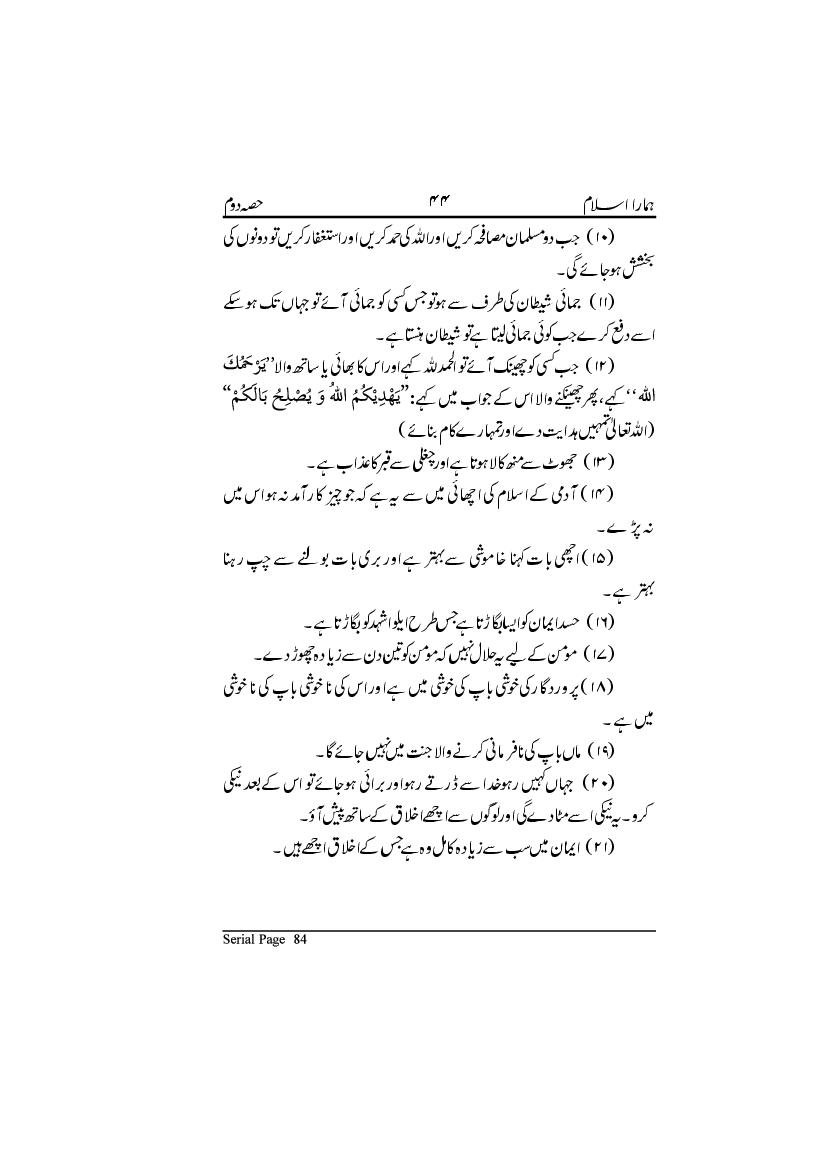 ہمارا اسلام ۴۴ حصہ دوم
(۱۰) جب دو مسلمان مصافحہ کریں اور اللہ کی حمد کریں اور استغفار کریں تو دونوں کی
بخشش ہوجائے گی۔
(۱۱) جمائی شیطان کی طرف سے ہو تو جس کسی کو جمائی آئے تو جہاں تک ہو سکے
اسے دفع کرے جب کوئی جمائی لیتا ہے تو شیطان ہنستا ہے۔
(۱۲) جب کسی کو چھینک آئے تو الحمد للہ کہے اور اس کا بھائی یا ساتھ والا ’’یَرْحَمُكَ
اللہ‘‘ کہے، پھر چھینکنے والا اس کے جواب میں کہے: ”یَهْدِیْکُمُ اللہُ وَ یُصْلِحُ بَالَکُمْ“
(اللہ تعالیٰ تمہیں ہدایت دے اور تمہارے کام بنائے)
(۱۳) جھوٹ سے منھ کالا ہوتا ہے اور چغلی سے قبر کا عذاب ہے۔
(۱۴) آدمی کے اسلام کی اچھائی میں سے یہ ہے کہ جو چیز کارآمد نہ ہو اس میں
نہ پڑے۔
(۱۵) اچھی بات کہنا خاموشی سے بہتر ہے اور بری بات بولنے سے چپ رہنا
بہتر ہے۔
(۱۶) حسد ایمان کو ایسا بگاڑتا ہے جس طرح ایلوا شہد کو بگاڑتا ہے۔
(۱۷) مومن کے لیے یہ حلال نہیں کہ مومن کو تین دن سے زیادہ چھوڑ دے۔
(۱۸) پروردگار کی خوشی باپ کی خوشی میں ہے اور اس کی ناخوشی باپ کی ناخوشی
میں ہے۔
(۱۹) ماں باپ کی نافرمانی کرنے والا جنت میں نہیں جائے گا۔
(۲۰) جہاں کہیں رہو خدا سے ڈرتے رہو اور برائی ہوجائے تو اس کے بعد نیکی
کرو۔ یہ نیکی اسے مٹا دے گی اور لوگوں سے اچھے اخلاق کے ساتھ پیش آؤ۔
(۲۱) ایمان میں سب سے زیادہ کامل وہ ہے جس کے اخلاق اچھے ہیں۔
Serial Page 84